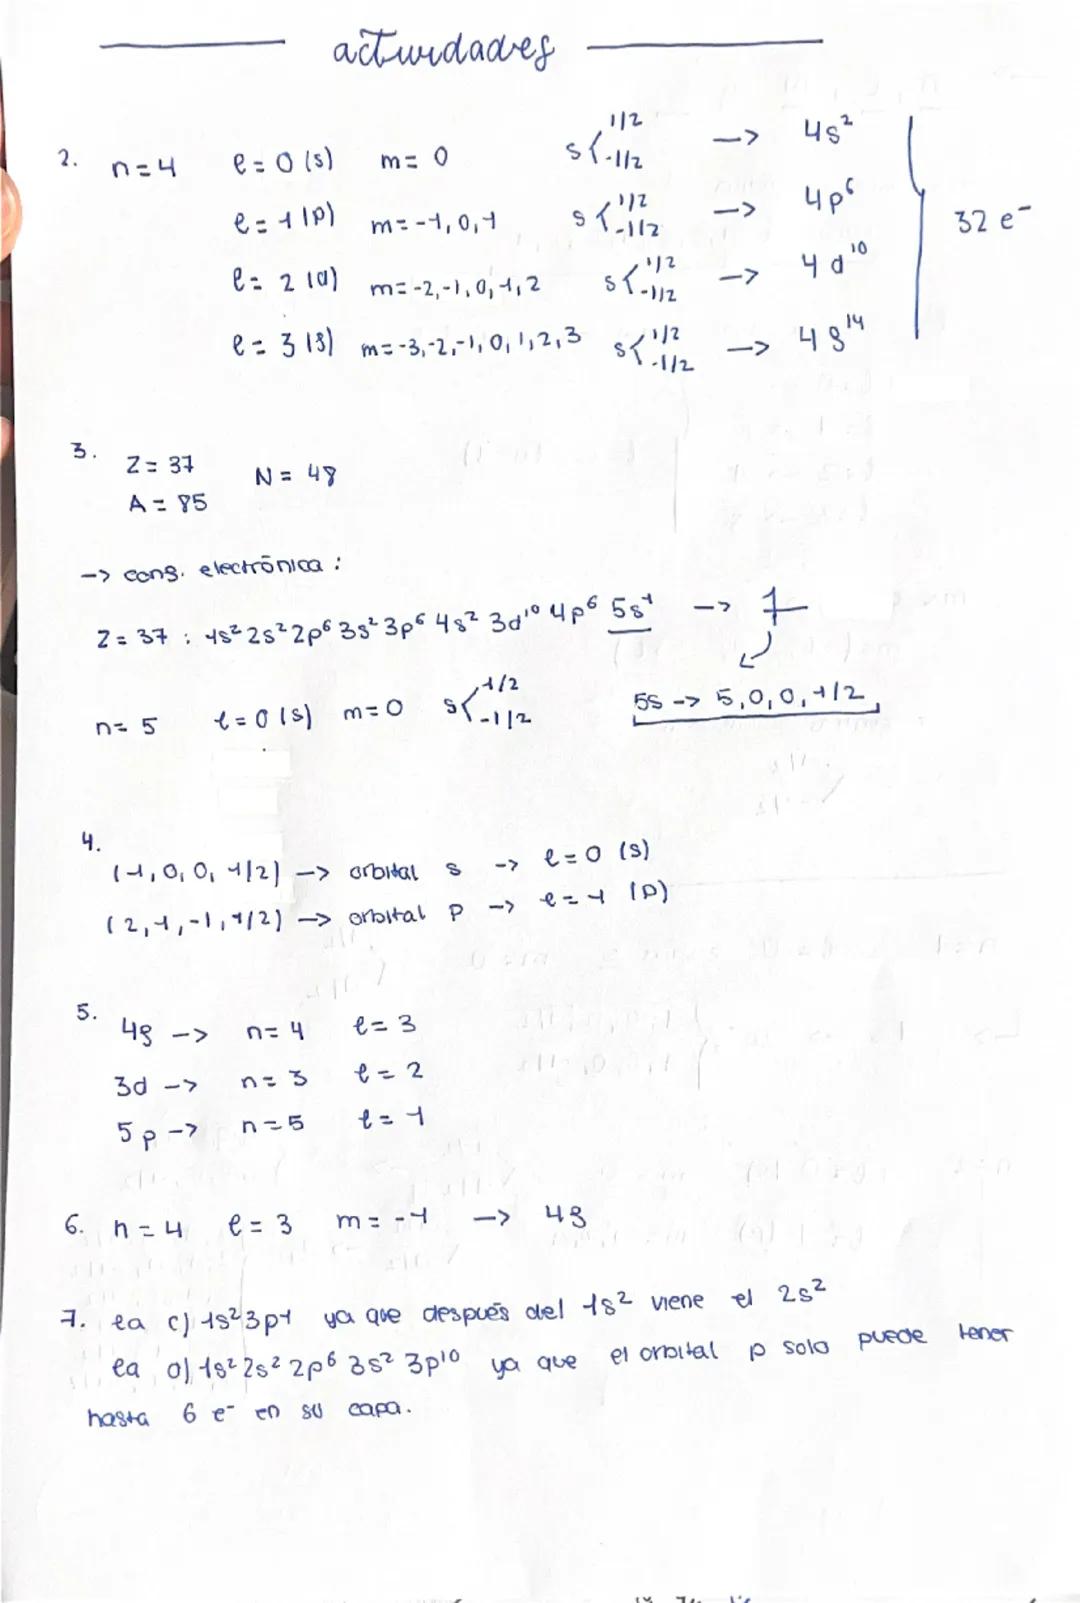 actividades
2. n=4 l=0 (s) m=0 s 1/2 -1/2 -> 4s²
l=1 (p) m=-1,0,1 s 1/2 -1/2 -> 4p⁶
32 e⁻
l=2 (d) m=-2,-1,0,1,2 s 1/2 -1/2 -> 4d¹⁰
l=3 (f) m=-3,-2,-1,0,1,2,3 s 1/2 -1/2 -> 4f¹⁴
3. Z=37 N=48
A=85
-> conf. electrónica:
Z=37: 1s² 2s² 2p⁶ 3s² 3p⁶ 4s² 3d¹⁰ 4p⁶ 5s¹ -> 1
n=5 l=0 (s) m=0 s 1/2 -1/2 5s -> 5,0,0,1/2
4.
(1,0,0,1/2) -> orbital s -> l=0 (s)
(2,1,-1,1/2) -> orbital p -> l=1 (p)
5. 4f -> n=4 l=3
3d -> n=3 l=2
5p -> n=5 l=1
6. n=4 l=3 m=-1 -> 4f
7. la c) 1s² 3p1 ya que después del 1s² viene el 2s²
la d) 1s² 2s² 2p⁶ 3s² 3p¹⁰ ya que el orbital p solo puede tener
hasta 6 e⁻ en su capa.